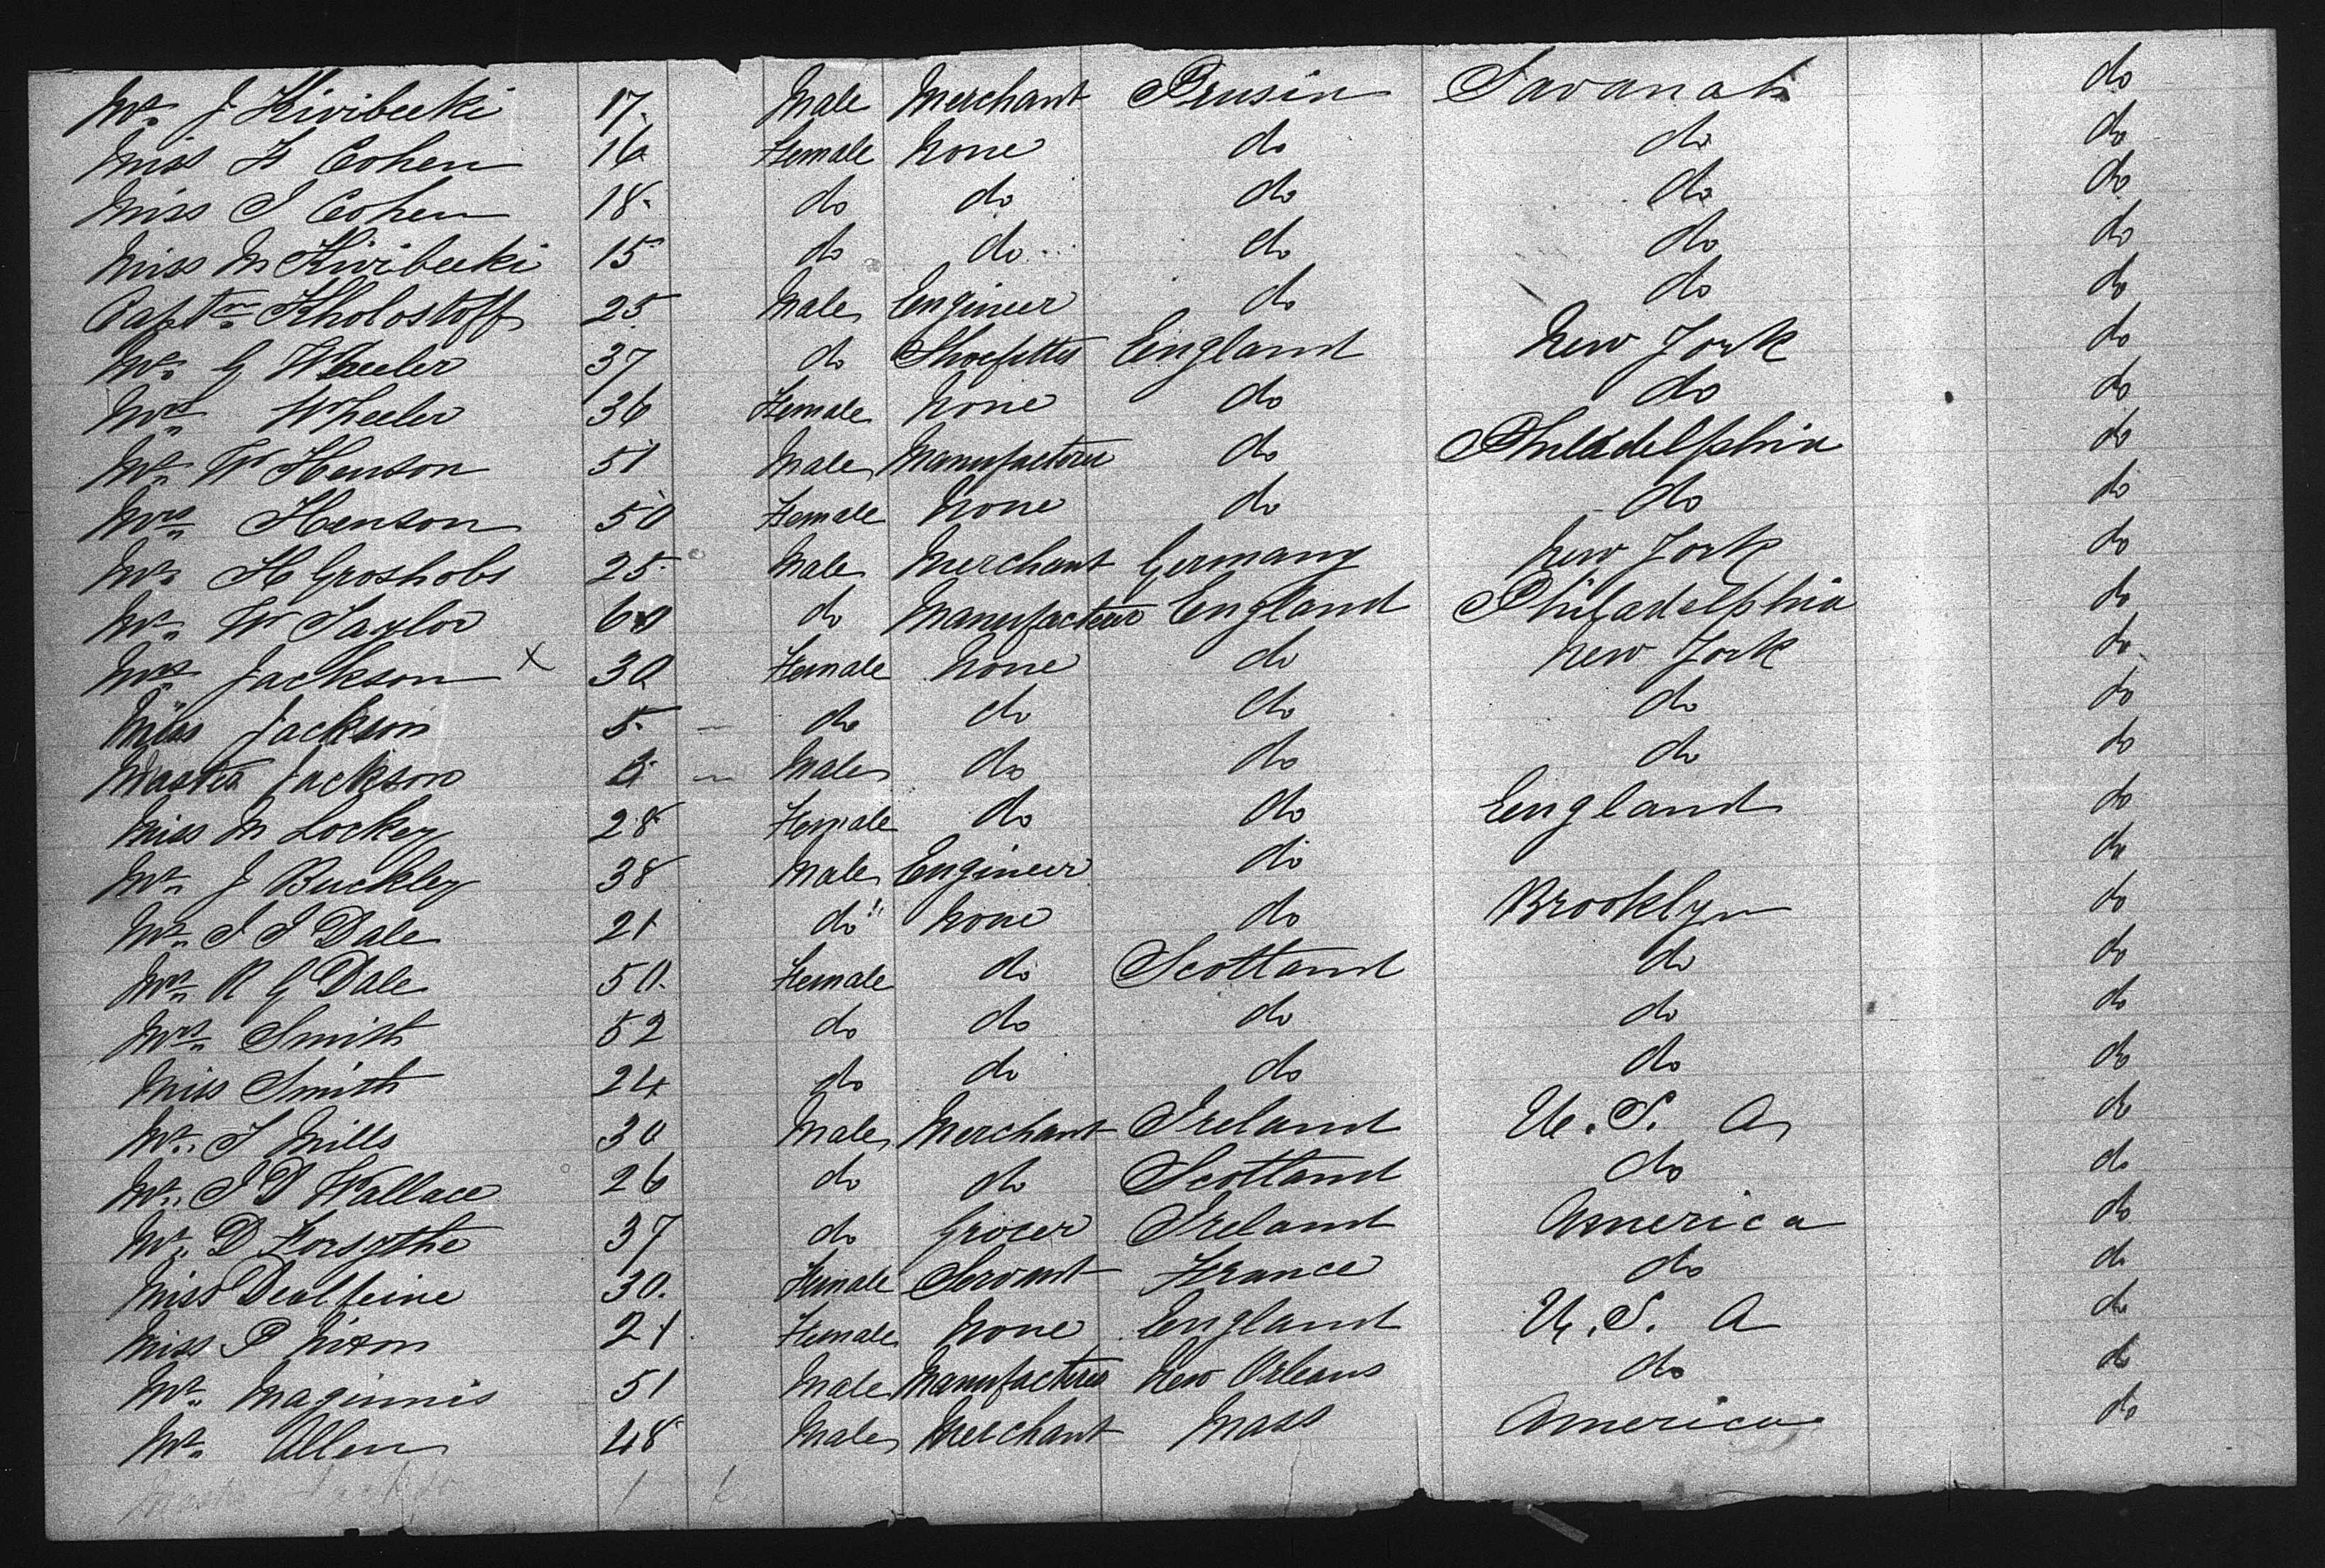 Mr. J Kivibecki 17. Male Merchant Prusin Savanah do
Miss H Cohen 16 Female None do do do
Miss I Cohen 18. do do do do do
Miss M Kivibecki 15 do do do do do
Captn. Kholostoff 25 Male Engineer do do do
Mr. G Wheeler 37 do England New York do
Mrs. Wheeler 36 Female None do do do
Mr. W Henson 51 Male Manufacturer do Philadelphia do
Mrs. Henson 50 Female None do do do
Mr. H Groshobs 25 Male Merchant Germany New York do
Mr. W Taylor 60 do Manufacturer England Philadelphia do
Mrs. Jackson x 30 Female None do New York do
Miss Jackson 5. — do do do do do
Master Jackson — Male do do do do
Miss M Lockey 28 Female do do England do
Mr. J Buckley 38 Male Engineer do do
Mr. S S Dale 21 do" None do Brooklyn do
Mrs. R G Dale 50. Female do Scotland do do
Mrs. Smith 52 do do do do do
Miss Smith 24 do do do do do
Mr. T Mills 30 Male Merchant Ireland U. S. A do
Mr. J D Wallace 26 do do Scotland do do
Mr. D Forsythe 37 do Grocer Ireland America do
Miss 30. Female Servant France do do
Miss P Nixon 21 Female None England U. S. A do
Mr. Maginnis 51 Male Manufacturer New Orleans do do
Mr. Allen 48 Male Merchant Mass America do